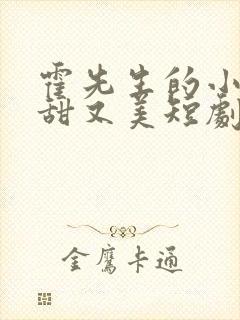 霍先生的小
甜又美短劇
金鷹卡通